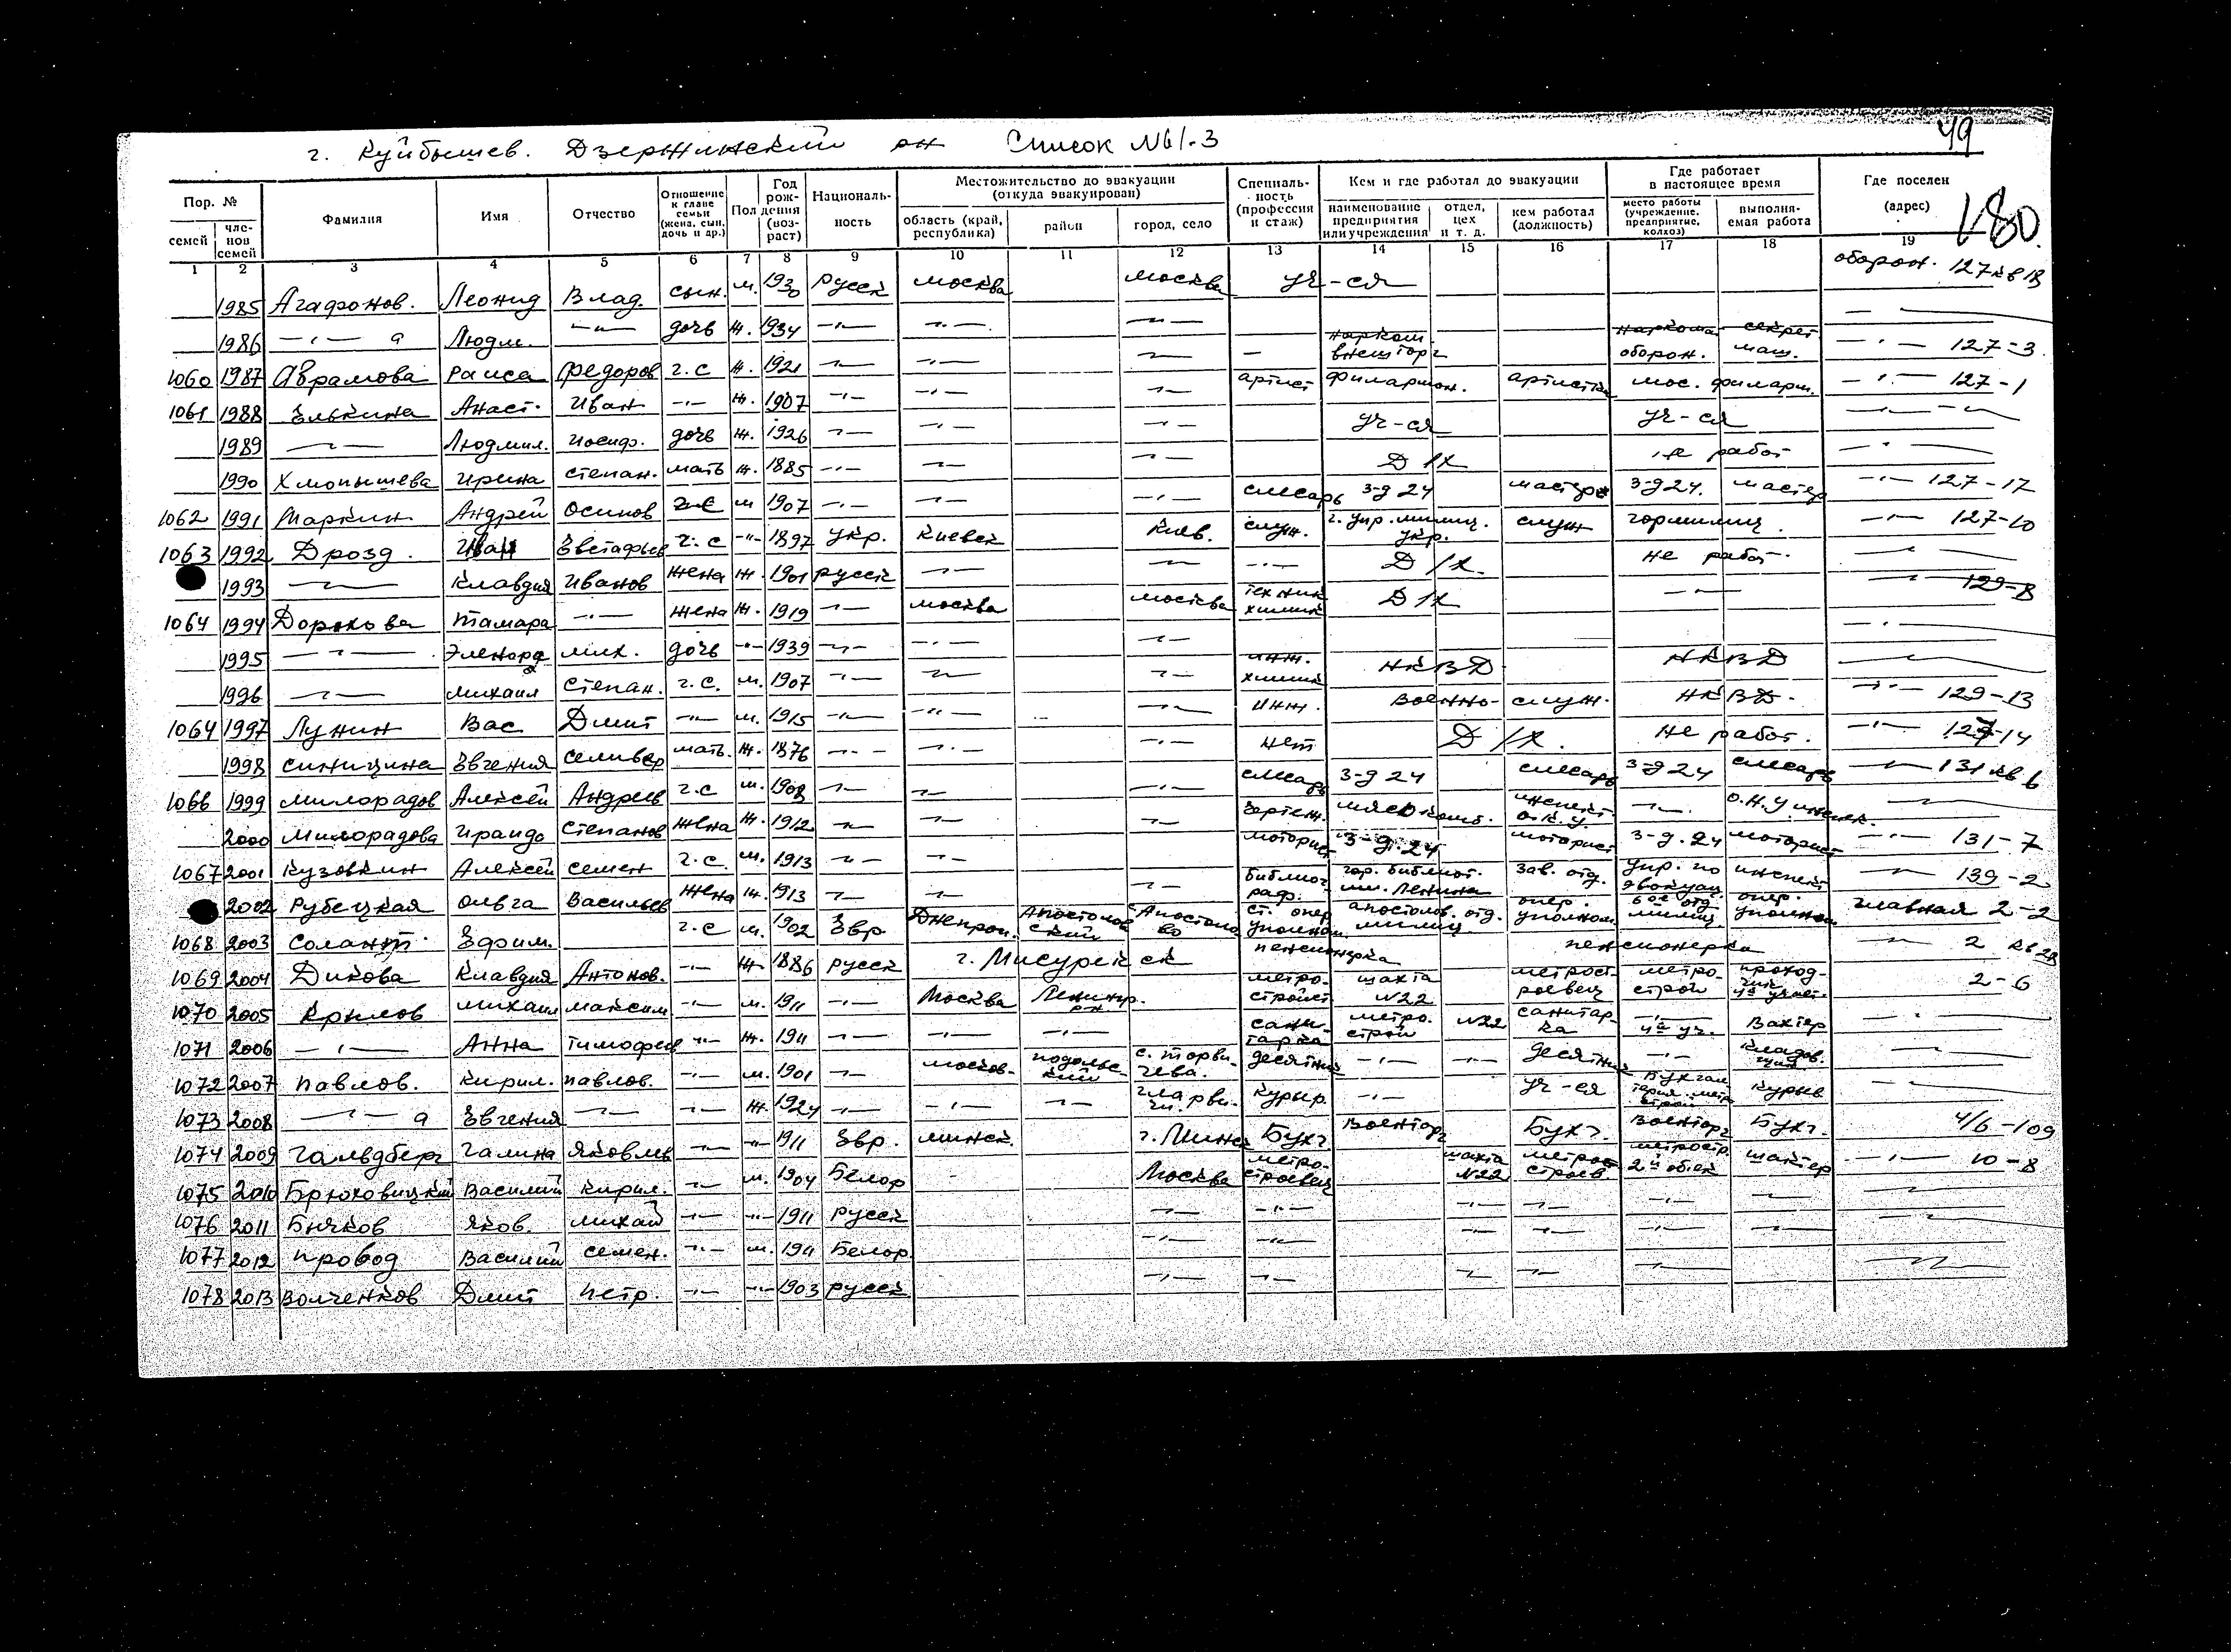 49
г. Куйбышев. Дзержинский рн Список №61-3
180.
Пор. № Фамилия Имя Отчество Отношение к главе семьи (жена, сын, дочь и др.) Пол Год рождения (возраст) Националь-ность Местожительство до эвакуации (откуда эвакуирован) Специаль-ность (профессия и стаж) Кем и где работал до эвакуации Где работает в настоящее время Где поселен (адрес)
семей чле-нов семей область (край, республика) район город, село наименование предприятия или учреждения отдел, цех и т. д. кем работал (должность) место работы (учреждение, предприятие, колхоз) выполня-емая работа
1 2 3 4 5 6 7 8 9 10 11 12 13 14 15 16 17 18 19
1985 Агафонов. Леонид Влад. сын. м. 1930 Русск Москва Москва уч-ся оборон. 127 кв 18
1986 -"- а Людм. -"- дочь ж. 1934 -"- -"- -"- -"-
1060 1987 Аврамова Раиса Федоров г.с ж. 1921 -"- -"- -"- - нарком внешторг наркома оборон. секрет маш. -"- 127-3
1061 1988 Елькина Анаст. Иван -"- ж. 1907 -"- -"- -"- артист филармон. артистка мос. филарм. -"- 127-1
1989 -"- Людмил. Иосиф. дочь ж. 1926 -"- -"- -"- уч-ся уч-ся -"-
1990 Хмопышева Ирина Степан. мать ж. 1885 -"- -"- -"- Д/Х не работ -"-
1062 1991 Маркин Андрей Осипов г.с м 1907 -"- -"- -"- слесарь з-д 24 мастер з-д 24. мастер -"- 127-17
1063 1992 Дрозд. Иван Евстафьев г.с -"- 1897 укр. Киевск Киев. служ. г. упр. милиц. укр. служ гормилиц. -"- 127-10
1993 -"- Клавдия Иванов жена ж. 1901 русск -"- -"- -"- Д/Х. не работ. -"-
1064 1994 Дорохова Тамара -"- жена ж. 1919 -"- Москва Москва техник химик Д/Х -"- -"- 129-8
1995 -"- Эленора мих. дочь -"- 1939 -"- -"- -"- -"-
1996 -"- Михаил Степан. г.с. м. 1907 -"- -"- -"- инж. химик НКВД НКВД -"-
1064 1997 Лунин Вас Дмит -"- м. 1915 -"- -"- -"- инж. военно-служ. НКВД. -"- 129-13
1998 Синицина Евгения Селивер мать. ж. 1876 -"- -"- -"- нет Д/Х. не работ. -"- 127-14
1066 1999 Милорадов Алексей Андреев г.с м. 1908 -"- -"- -"- слесарь з-д 24 слесарь з-д 24 слесарь -"- 131 кв 6
2000 Милорадова Ираида Степанов жена ж. 1912 -"- -"- -"- чертеж. мясокомб. инспект. о.к.у. -"- -"-
1067 2001 Кузовкин Алексей семен г.с. м. 1913 -"- -"- моторист з-д. 24 моторист з-д. 24 моторист -"- 131-7
2002 Рубецкая Ольга Васильев жена ж. 1913 -"- -"- -"- библиограф. гор. библиот. им. Ленина зав. отд. упр. по эвакуац. инспект -"- 139-2
1068 2003 Солант. Ефрим. г.с м. 1902 Евр Днепроп. Апостоловский Апостолово ст. опер уполном апостолов. отд. милиц. опер. уполном. 6ое отд. милиц. опер. уполном главная 2-2
1069 2004 Дикова Клавдия Антонов. -"- ж. 1886 русск г. Мисурск пенсионерка пенсионерка -"- 2 кв 28
1070 2005 Крылов Михаил Максим -"- м. 1911 -"- Москва Ленинг. р-н метро-строит шахта №22 метростроевец метро-строй проход-чик 4й участ. 2-6
1071 2006 -"- Анна Тимофеев -"- ж. 1911 -"- -"- -"- сани-тарка метро.строй №22 санитар-ка -"- 4й уч. Вахтер -"-
1072 2007 Павлов. Кирил. Павлов. -"- м. 1901 -"- москов. подольс-кий десятник -"- -"- десятник -"- кладов-щик -"-
1073 2008 -"- а Евгения -"- -"- ж. 1924 -"- -"- -"- курьер. -"- уч-ся Бухгал-терия метро строй курьер -"-
1074 2009 Гальдберг Галина Яковлев -"- -"- 1911 Евр. Минск. г. Минск Бухг. Военторг Бухг. Военторг Бухг. 4/6-109
1075 2010 Брюховицкий Василий Кирил. -"- м. 1904 Белор - Москва метро-строевец шахта №22 метрост строев. метростр. 2й обьек шахтер -"- 10-8
1076 2011 Бычков Яков. Михай -"- -"- 1911 русск -"- -"- -"- -"- -"- -"- -"-
1077 2012 Провод Василий семен. -"- м. 1911 Белор. -"- -"- -"- -"- -"- -"- -"-
1078 2013 Волченков Дмит Петр. -"- -"- 1903 русск -"- -"- -"- -"- -"- -"- -"-